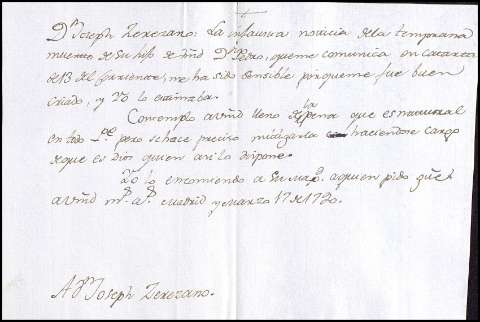 Dn Joseph Zerezano. La infausta noticia de la temprana
muerte de su hijo de Vmd Dn Pedro, que me comunica en carta
de 13 del corriente, me ha sido sensible porque me fue buen
criado, y Yo lo estimaba.
Contemplo a Vmd lleno de la pena que es natural
en todo Pe pero se hace preciso mitigarla haciendose cargo
de que es Dios quien asi lo dispone.
Yo lo encomiendo a Su Magd. a quien pido gue
a Vmd ms. as. Madrid y Marzo 17 de
A Dn Joseph Zerezano.